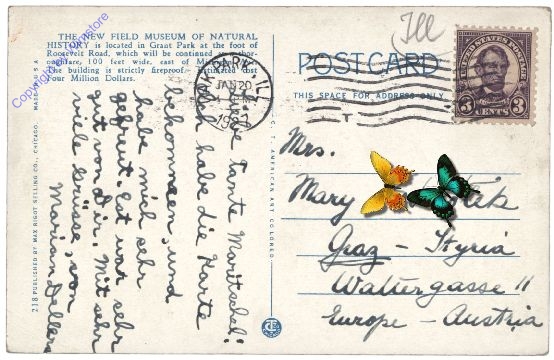 THE NEW FIELD MUSEUM OF NATURAL
HISTORY is located in Grant Park at the foot of
Roosevelt Road, which will be continued as a thor-
oughfare, 100 feet wide, east of Michigan
The building is strictly fireproof. Estimated cost
Four Million Dollars.
Ill
PARK, ILL
JAN 20
1927
POST CARD
THIS SPACE FOR ADDRESS ONLY
UNITED STATES POSTAGE
3 CENTS 3
Liebe Tante Maritschel!
Ich habe die Karte
bekommen, und
habe mich sehr
gefreut. Es war sehr
von dir. Mit sehr
viele Grüsse, von
Marian
Mrs.
Mary
Graz - Styria
Waltergasse 11
Europe - Austria
218 PUBLISHED BY MAX RIGOT SELLING CO., CHICAGO.
C. T. AMERICAN ART COLORED
Copyright by